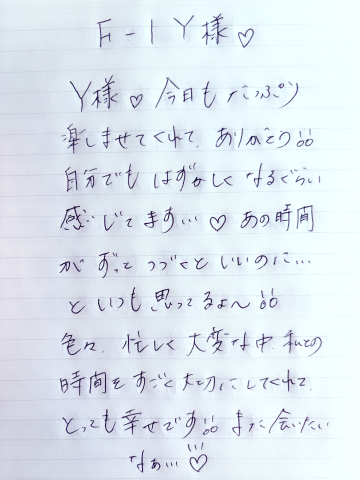 F-1 Y様♡
Y様♡ 今日も たっぷり
楽しませてくれて、ありがとう!!
自分でも はずかしく なるぐらい
感じてます…♡ あの時間
が ずっと つづくと いいのに…
と いつも 思ってるよ〜!!
色々、忙しく 大変な中、私との
時間を すごく大切にしてくれて、
とっても 幸せです!! また 会いたい
なぁ…♡